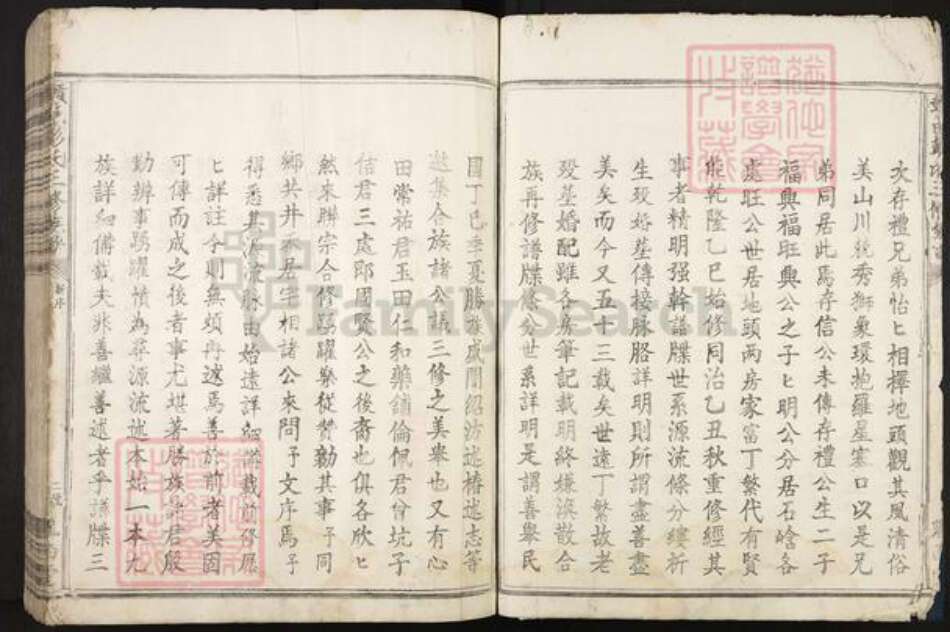 次存禮兄弟怡匕相擇地頭觀其風清俗
美山川毓秀獅象環抱羅星塞口以是兄
弟同居此焉存信公未傳存禮公生二子
福興福旺興公之子匕明公分居石峆各
處旺公世居地頭两房家富丁繁代有賢
能乾隆乙巳始修同治乙丑秋重修經其
事者精明强幹譜牒世系源流條分縷析
生殁婚塟傳接脉胳詳明則所謂盡善盡
美矣而今又五十三載矣世遠丁繁故老
殁塟婚配雖各房筆記載明終嫌渙散合
族再修譜牒條分世系詳明是謂善舉民
國丁巳季夏勝族成開紹汸述椿述志等
集合族諸公議三修之美舉也又有心
田常祐君玉田仁和藥舖倫佩君份坑子
信君三處郎國賢公之後裔也俱各欣匕
然來聯宗合修踴躍樂從贊勸其事予同
鄉共井居宅相諸公來問予文序焉予
得悉其源流脉由始遠詳細講載前修屋
匕詳註今則無煩冉述焉善於前者美固
可傳而成之後者事尤堪著勝族諸君殷
勤辦事踴躍憤為尋源流述本始一本九
族詳細備載夫非善繼善述者乎譜牒三
FamilySearch